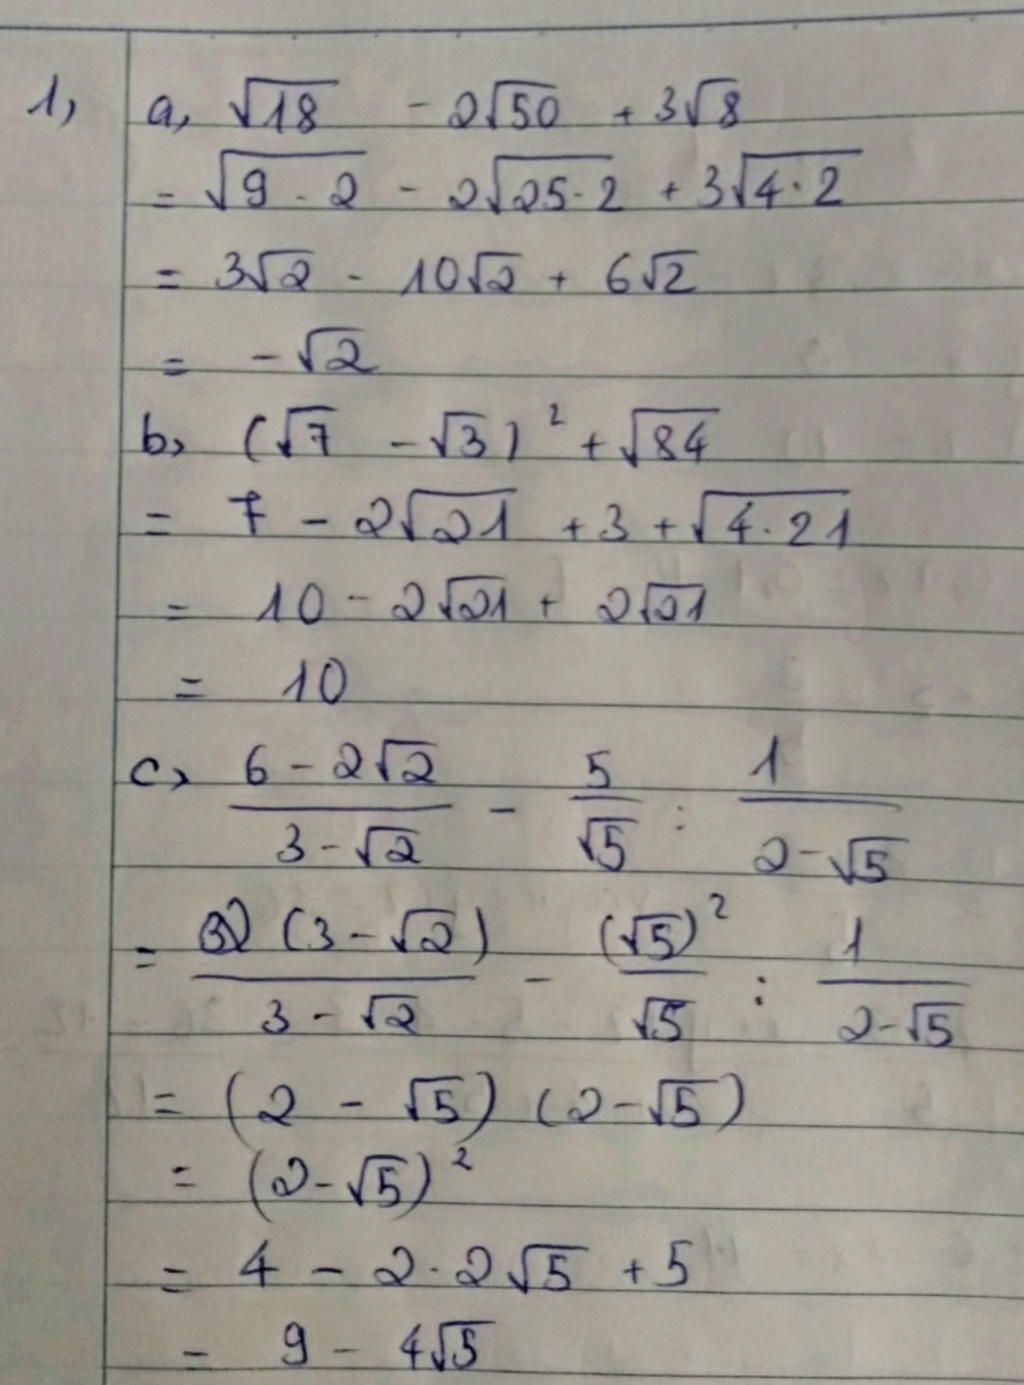 1, a, √18 - 2√50 + 3√8
= √(9 · 2) - 2√(25·2) + 3√(4·2)
= 3√2 - 10√2 + 6√2
= -√2
b, (√7 - √3)² + √84
= 7 - 2√21 + 3 + √(4·21)
= 10 - 2√21 + 2√21
= 10
c, (6 - 2√2)/(3 - √2) - 5/√5 : 1/(2-√5)
= (3 - √2)/(3 - √2) - (√5)²/√5 : 1/(2-√5)
= (2 - √5) (2-√5)
= (2-√5)²
= 4 - 2·2√5 + 5
= 9 - 4√5